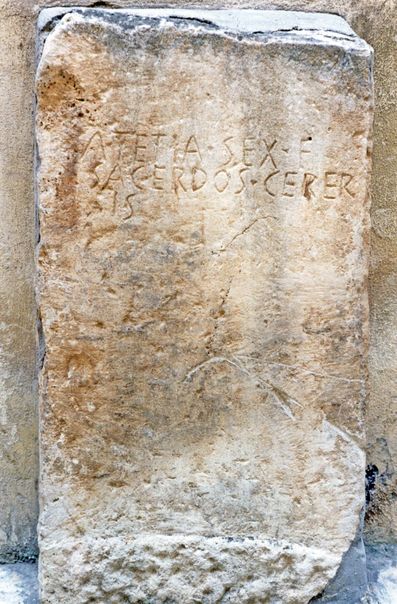 ATETIA·SEX·F
SACERDOS·CERER
IS